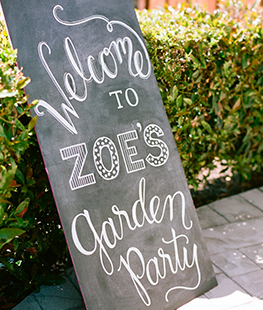 Welcome
TO
ZOE'S
Garden
Party